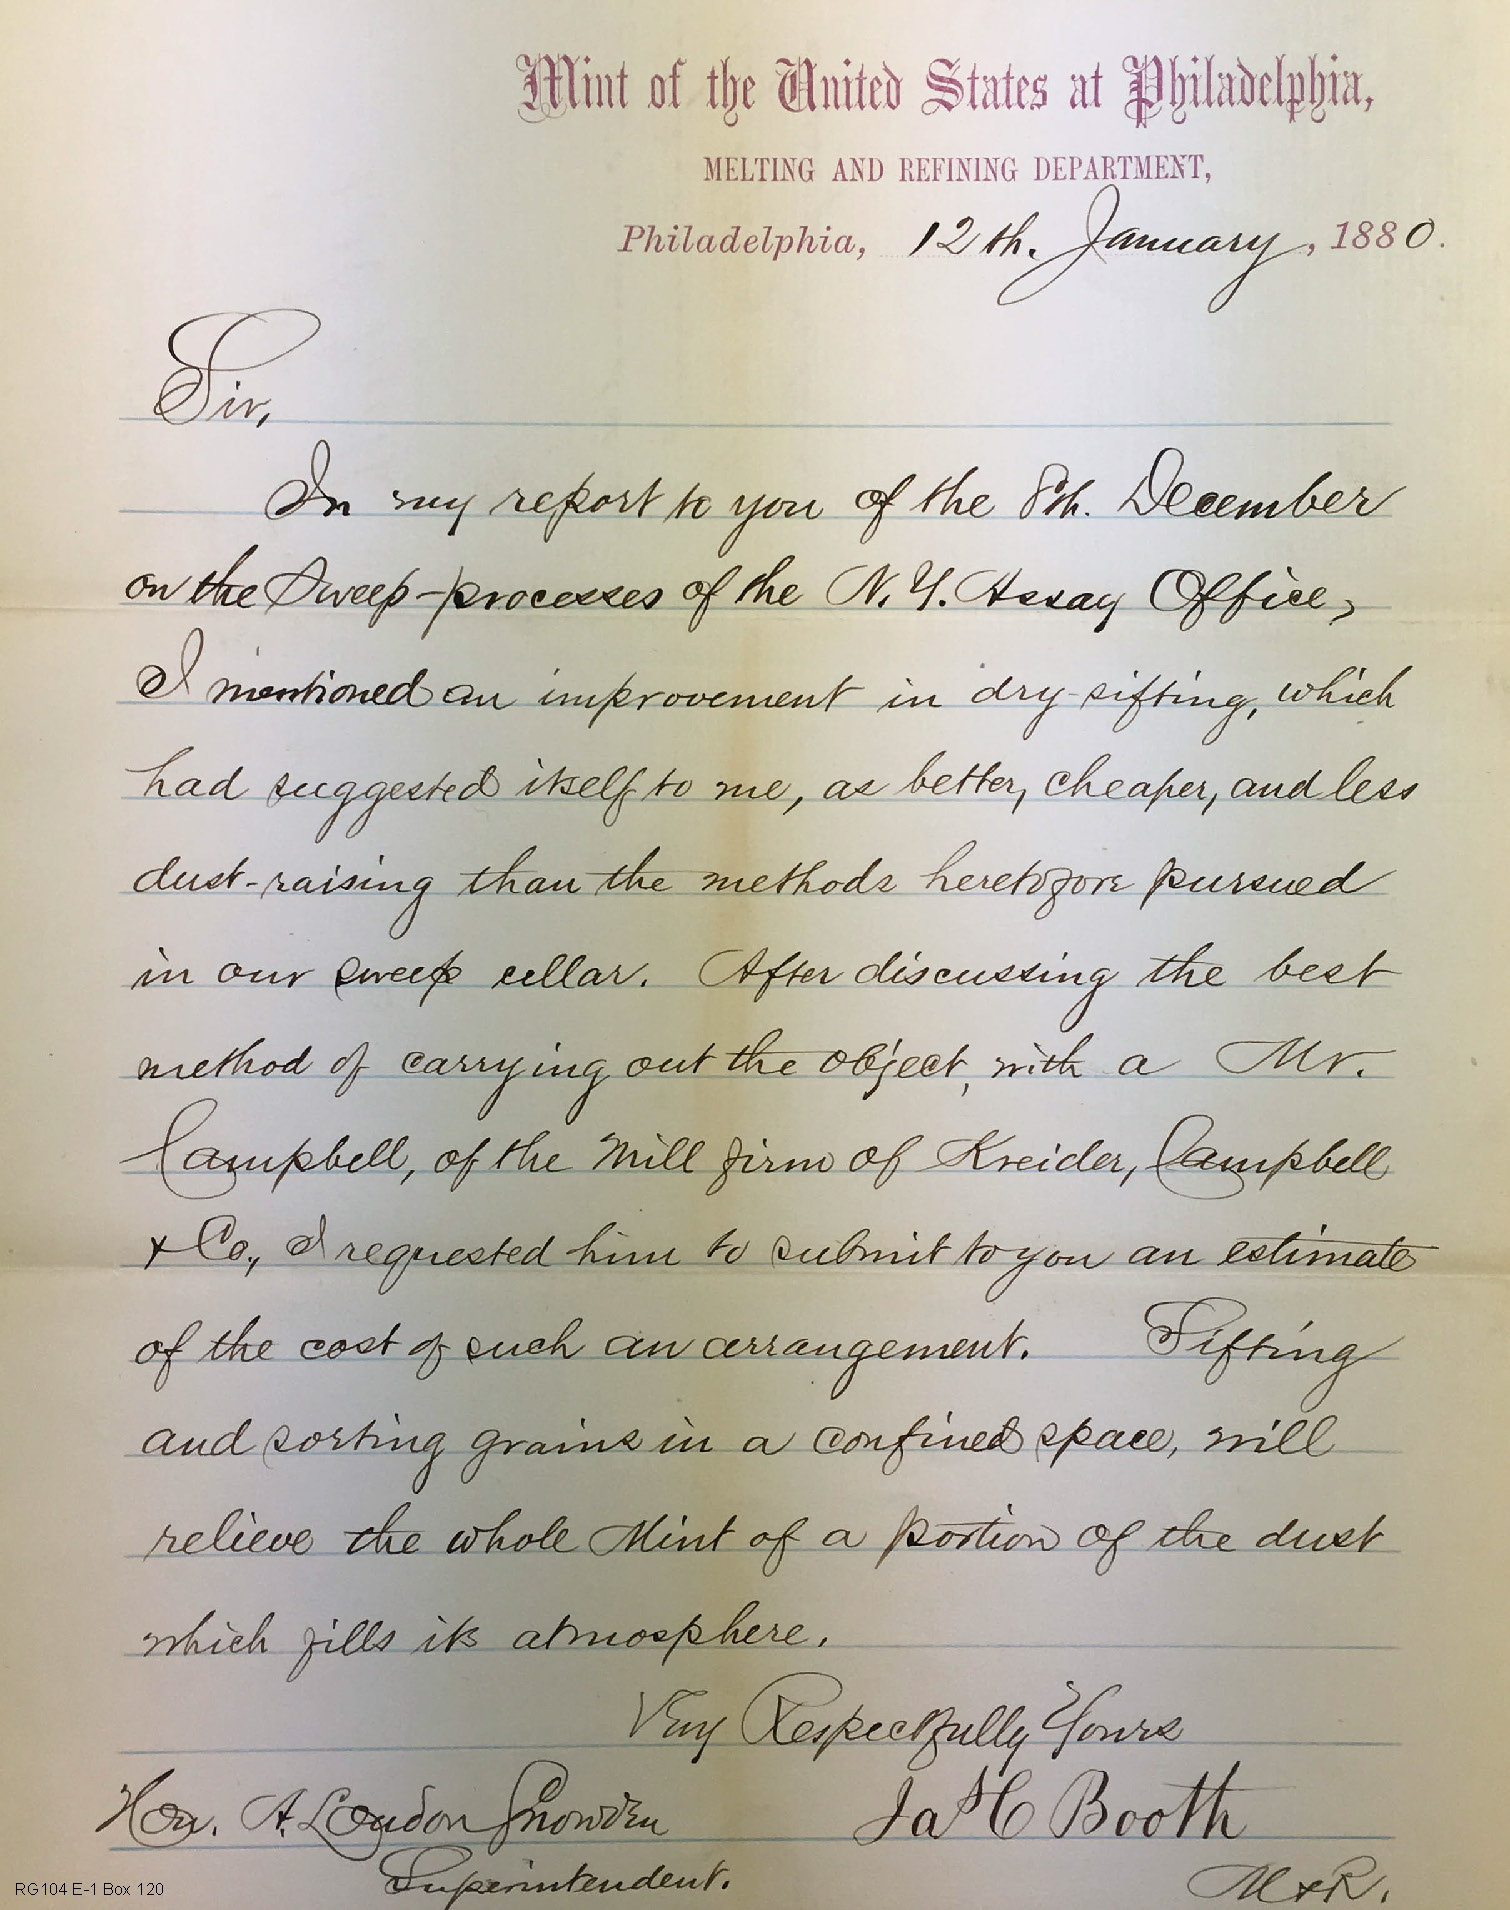 Mint of the United States at Philadelphia,
MELTING AND REFINING DEPARTMENT,
Philadelphia, 12th. January, 1880.
Sir,
In my report to you of the 8th. December
on the Sweep-processes of the N. Y. Assay Office,
I mentioned an improvement in dry-sifting, which
had suggested itself to me, as better, cheaper, and less
dust-raising than the methods heretofore pursued
in our sweep cellar. After discussing the best
method of carrying out the object, with a Mr.
Campbell, of the Mill firm of Kreider, Campbell
& Co., I requested him to submit to you an estimate
of the cost of such an arrangement. Sifting
and sorting grains in a confined space, will
relieve the whole Mint of a portion of the dust
which fills its atmosphere.
Very Respectfully Yours
Hon. A. Loudon Snowden Jas C Booth
Superintendent. M & R.
RG104 E-1 Box 120